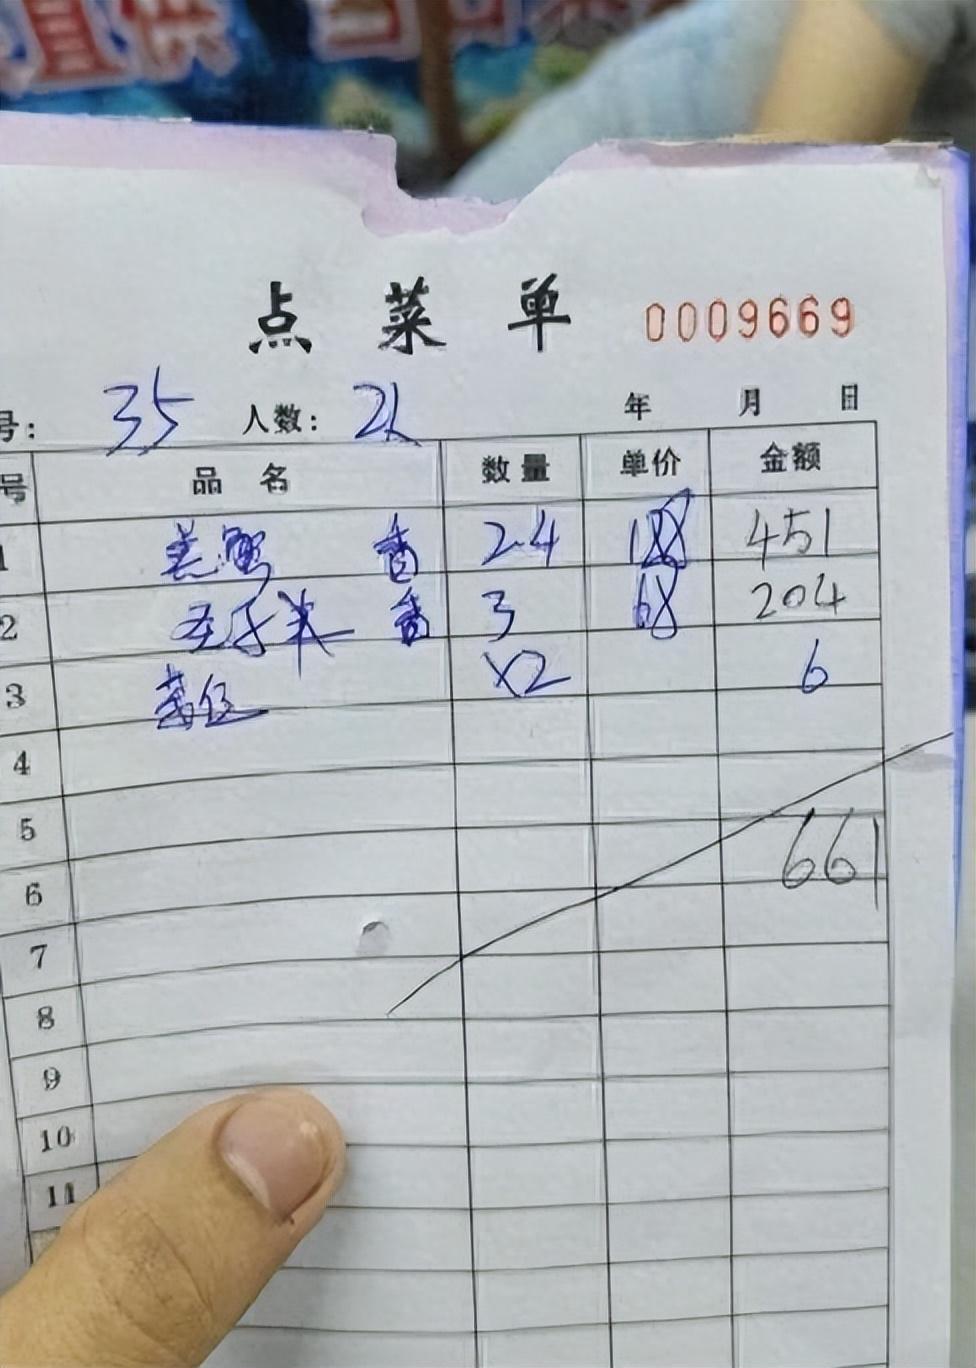 直供
点菜单 0009669
号: 35 人数: 2人 年 月 日
号 品名 数量 单价 金额
1 香 2.4 188 451
2 香 3 68 204
3 ×2 6
4
5
661
6
7
8
9
10
11